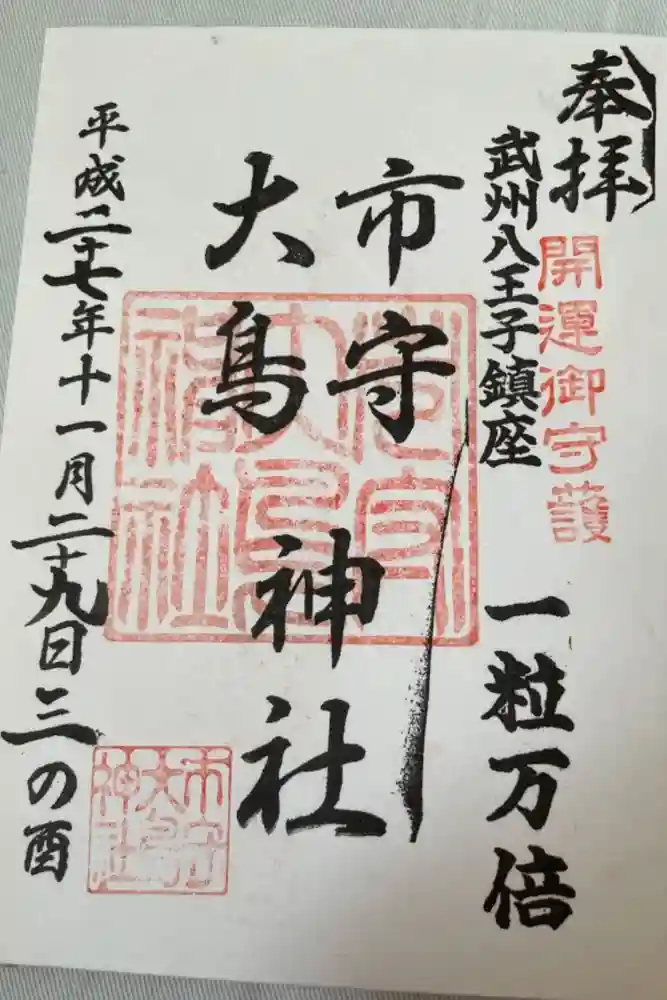 奉拝
開運御守護
武州八王子鎮座
一粒万倍
市守
大鳥
神社
平成二十七年十一月二十九日三の酉
市守
大鳥
神社
市守
大鳥
神社